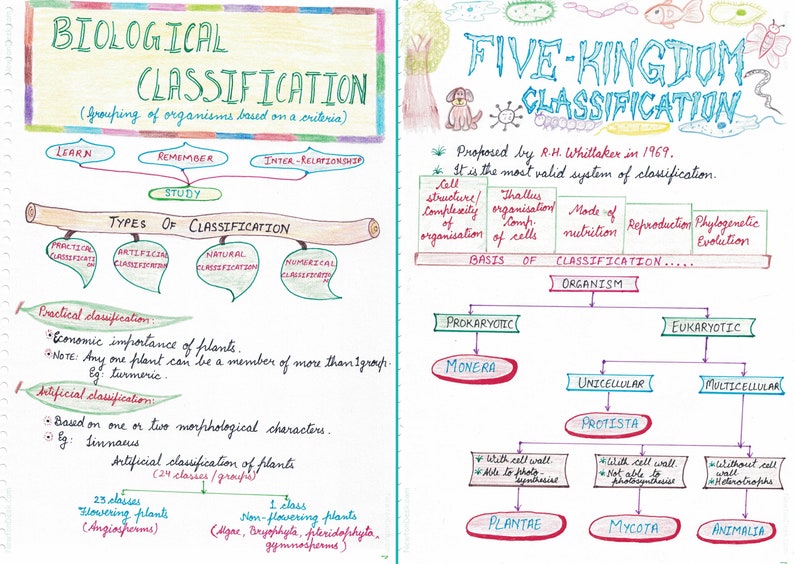 BIOLOGICAL
CLASSIFICATION
(Grouping of organisms based on a criteria)
LEARN
REMEMBER
INTER-RELATIONSHIP
STUDY
TYPES OF CLASSIFICATION
PRACTICAL
CLASSIFICATI
ON
ARTIFICIAL
CLASSIFICATION
NATURAL
CLASSIFICATION
NUMERICAL
CLASSIFICATIO
N
Practical classification:
Economic importance of plants.
NOTE: Any one plant can be a member of more than 1 group.
Eg: turmeric.
Artificial classification:
Based on one or two morphological characters.
Eg: Linnaeus
Artificial classification of plants
(24 classes/groups)
23 classes
Flowering plants
(Angiosperms)
1 class
Non-flowering plants
(Algae, Bryophyta, pteridophyta,
gymnosperms)
FIVE-KINGDOM
CLASSIFICATION
Proposed by R.H. Whittaker in 1969.
It is the most valid system of classification.
Cell
structure/
Complexity
of
organisation
Thallus
organisation/
Comp.
of cells
Mode of
nutrition
Reproduction
Phylogenetic
Evolution
BASIS OF CLASSIFICATION.....
ORGANISM
PROKARYOTIC
EUKARYOTIC
MONERA
UNICELLULAR
MULTICELLULAR
PROTISTA
With cell wall.
Able to photo-
synthesise
With cell wall.
Not able to
photosynthesise
Without cell
wall
Heterotrophs
PLANTAE
MYCOTA
ANIMALIA